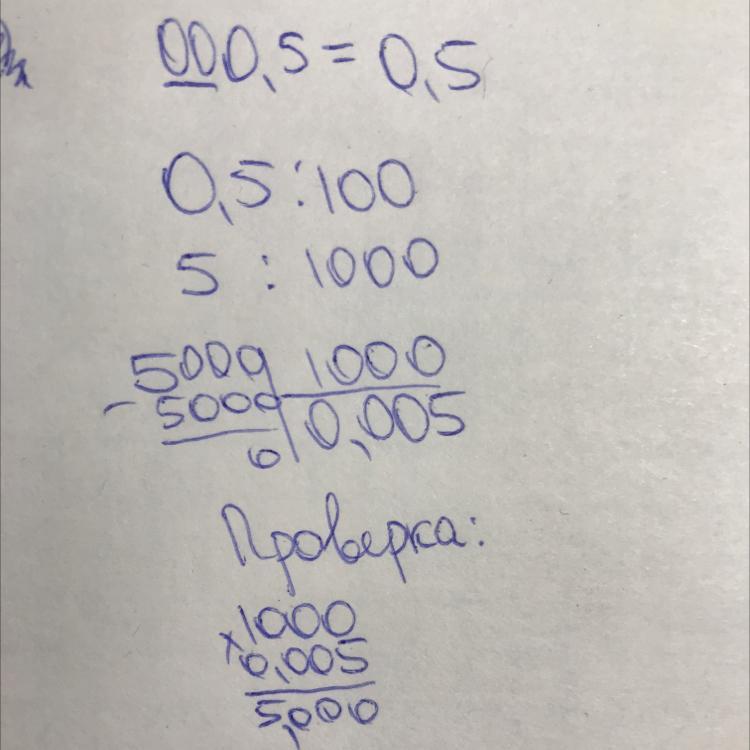 000,5 = 0,5
0,5 : 100
5 : 1000
5000 1000
- 5000 0,005
0
Проверка:
1000
× 0,005
5,000